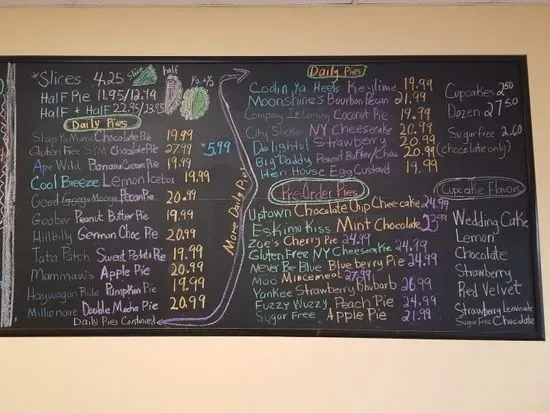 *Slices 4.25 Slice half 1/2 + 1/2
Half Pie 11.95/12.79
Half + Half 22.95/23.95
Daily Pies
Slap Yo Mama Chocolate Pie 19.99
Gluten Free SYM Chocolate Pie 27.99 5.99
Ape Wild Banana Cream Pie 19.99
Cool Breeze Lemon Icebox 19.99
Good Googa Mooga Pecan Pie 20.99
Goober Peanut Butter Pie 19.99
Hillbilly German Choc Pie 20.99
Tata Patch Sweet Potato Pie 19.99
Mammaw's Apple Pie 20.99
Haywagon Ride Pumpkin Pie 19.99
Millionaire Double Mocha Pie 20.99
Daily Pies Continued
More Daily Pie!
Daily Pies
Codin Ya Heels Key lime 19.99
Moonshine's Bourbon Pecan 21.99
Company Iz Coming Coconut Pie 19.99
City Slicker NY Cheesecake 20.99
Delightful Strawberry 20.99
Big Daddy Peanut Butter/Choc 20.99
Hen House Egg Custard 19.99
Pre-Order Pies
Uptown Chocolate Chip Cheecake 24.99
Eskimo Kiss Mint Chocolate 23.99
Zoe's Cherry Pie 24.99
Gluten Free NY Cheesecake 24.79
Never Be Blue Blueberry Pie 24.99
Moo Mincemeat 27.99
Yankee Strawberry Rhubarb 26.99
Fuzzy Wuzzy Peach Pie 24.99
Sugar Free Apple Pie 21.99
Cupcakes 2.50
Dozen 27.50
Sugar free 2.60
(chocolate only)
Cupcake Flavors
Wedding Cake
Lemon
Chocolate
Strawberry
Red Velvet
Strawberry Lemonade
Sugar Free Chocolate